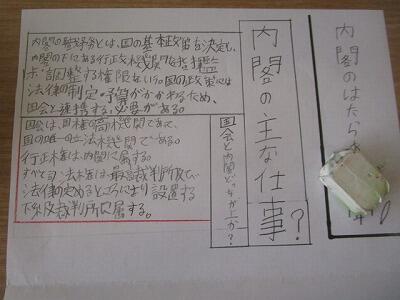 内閣のはたら
内閣の主な仕事?
内閣の
とは、国の基本政策を決定し、
内閣の下にある行政機関を指揮監
調整する権限をいう。国の政策には
法律の制定・予算がかかするため、
国会と連携する必要がある。
国会と内閣どっちが上か?
国会は、国権の高機関であって、
国の唯一の立法機関である。
行政権は、内閣に属する。
すべて司法権は、最高裁判所及び
法律の定めるところにより設置する
下級裁判所に属する。